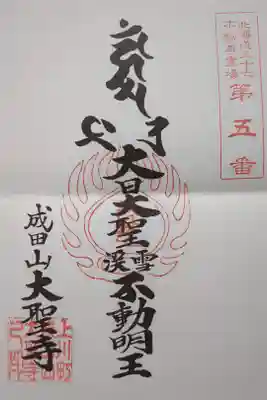 北海道三十六
不動尊霊場
第五番
大日大聖不動明王
雪渓
成田山大聖寺
上川町